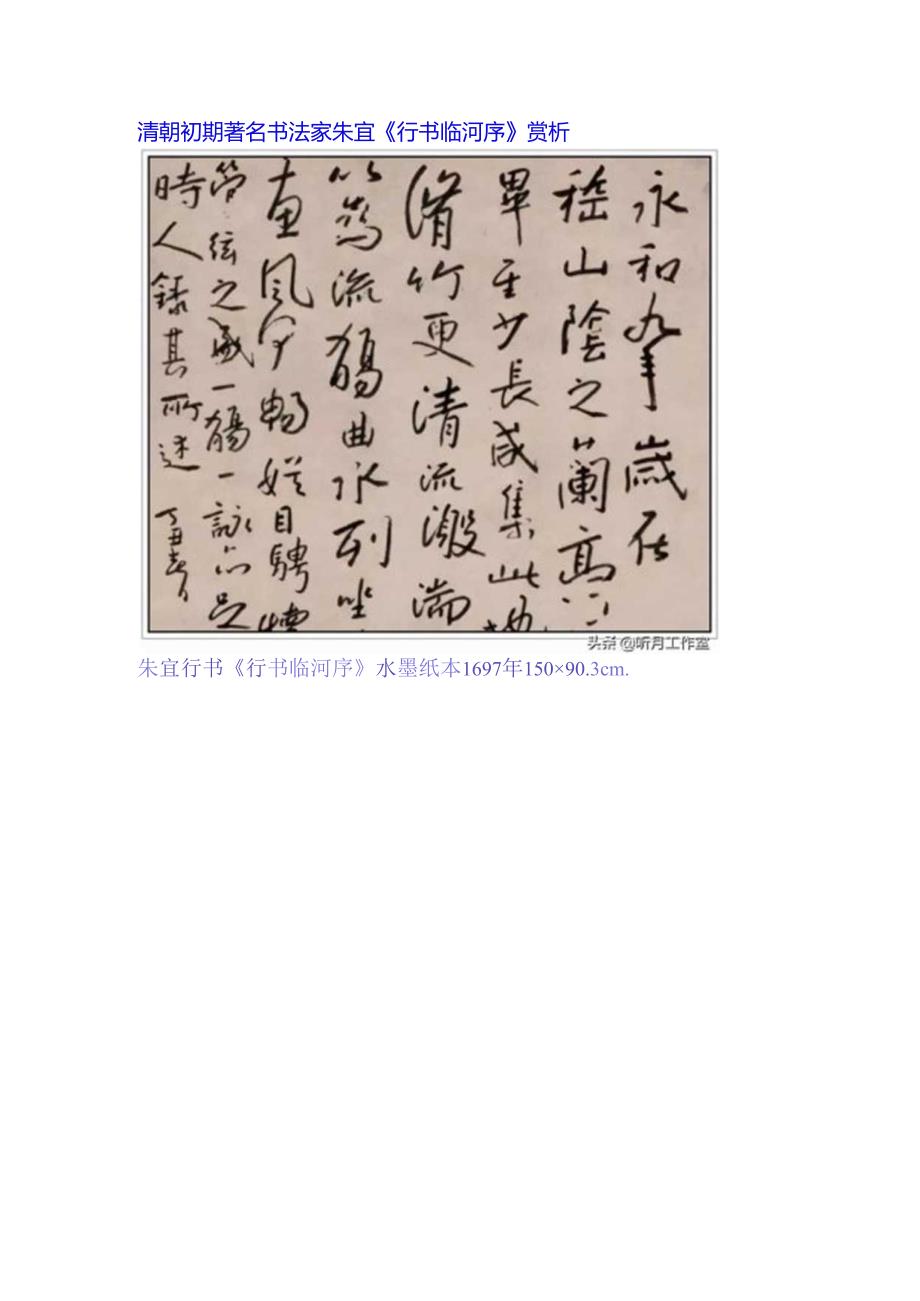 清朝初期著名书法家朱宜《行书临河序》赏析
永和九年歳在
嵇山陰之蘭髙
畢至少長咸集此地
脩竹更清流激湍
以為流觴曲水列坐
恵風和暢娱目騁懐
管弦之盛一觴一詠亦足
時人録其所述 丁丑春日
头条 @听月工作室
朱宜行书《行书临河序》水墨纸本1697年150×90.3cm.